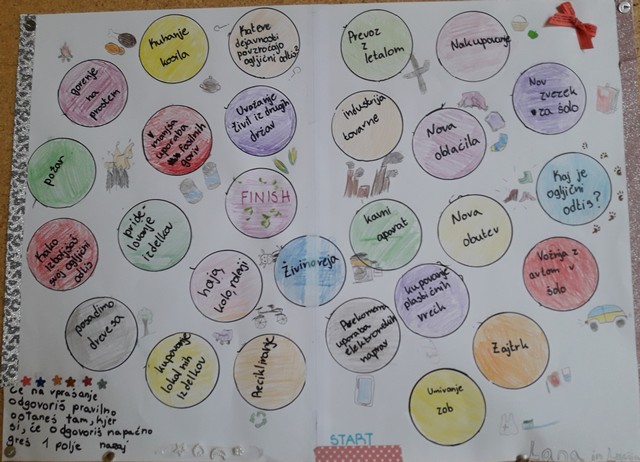 Kuhanje
kosila
Katere
dejavnosti
povzročajo
ogljični odtis
Prevoz
z
letalom
Nakupovanje
gorenje
na
prostem
manjša
uporaba
fosilnih
goriv
Uvažanje
živil iz drugih
držav
industrija
tovarne
Nova
oblačila
Nov
zvezek
za šolo
požar
pride-
lovanje
izdelkov
FINISH
kavni
aparat
Nova
obutev
Kaj je
ogljični
odtis?
Kako
izboljšaš
svoj ogljični
odtis
hoja,
kolo, rolaji
Živinoreja
kupovanje
plastičnih
vrečk
Vožnja z
avtom v
šolo
posadimo
drevesa
kupovanje
lokalnih
izdelkov
Recikliranje
Prekomerna
uporaba
elektronskih
naprav
Umivanje
zob
Zajtrk
Če na vprašanje
odgovoriš pravilno
ostaneš tam, kjer
si, če odgovoriš napačno
greš 1 polje nazaj
START
Lana in